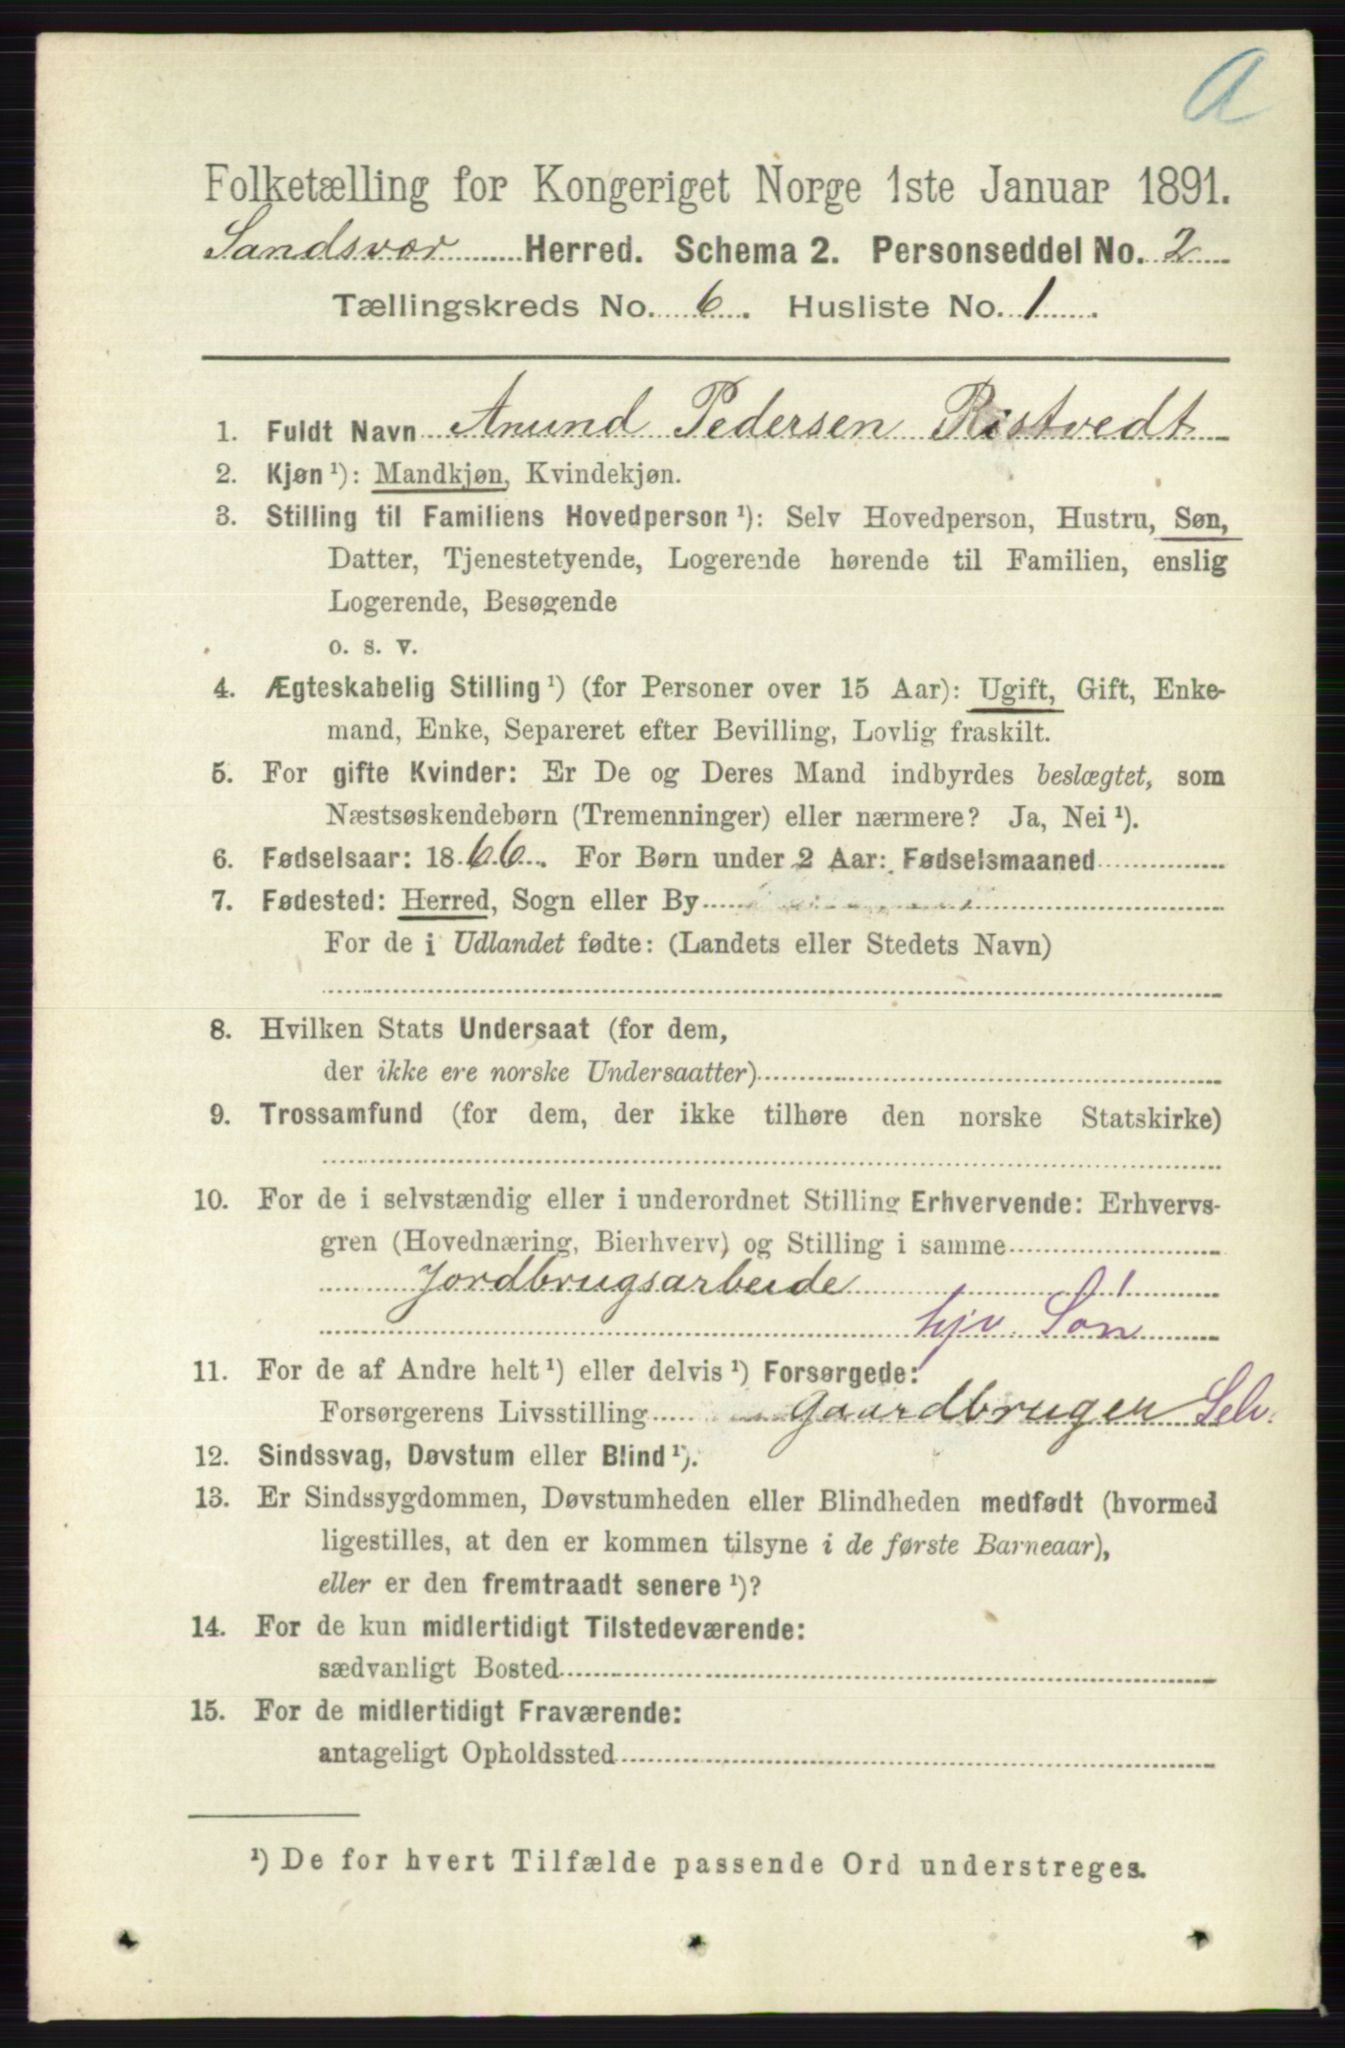 A
Folketælling for Kongeriget Norge 1ste Januar 1891.
Sandsvær Herred. Schema 2. Personseddel No. 2
Tællingskreds No. 6. Husliste No. 1.
1. Fuldt Navn Anund Pedersen Ristvedt
2. Kjøn ¹): Mandkjøn, Kvindekjøn.
3. Stilling til Familiens Hovedperson ¹): Selv Hovedperson, Hustru, Søn,
Datter, Tjenestetyende, Logerende hørende til Familien, enslig
Logerende, Besøgende
o. s. v.
4. Ægteskabelig Stilling ¹) (for Personer over 15 Aar): Ugift, Gift, Enke-
mand, Enke, Separeret efter Bevilling, Lovlig fraskilt.
5. For gifte Kvinder: Er De og Deres Mand indbyrdes beslægtet, som
Næstsøskendebørn (Tremenninger) eller nærmere? Ja, Nei ¹).
6. Fødselsaar: 1866. For Børn under 2 Aar: Fødselsmaaned
7. Fødested: Herred, Sogn eller By
For de i Udlandet fødte: (Landets eller Stedets Navn)
8. Hvilken Stats Undersaat (for dem,
der ikke ere norske Undersaatter)
9. Trossamfund (for dem, der ikke tilhøre den norske Statskirke)
10. For de i selvstændig eller i underordnet Stilling Erhvervende: Erhvervs-
gren (Hovednæring, Bierhverv) og Stilling i samme
Jordbrugsarbeide
hjv. Søn
11. For de af Andre helt ¹) eller delvis ¹) Forsørgede:
Forsørgerens Livsstilling Gaardbruger Selv.
12. Sindssvag, Døvstum eller Blind ¹).
13. Er Sindssygdommen, Døvstumheden eller Blindheden medfødt (hvormed
ligestilles, at den er kommen tilsyne i de første Barneaar),
eller er den fremtraadt senere ¹)?
14. For de kun midlertidigt Tilstedeværende:
sædvanligt Bosted
15. For de midlertidigt Fraværende:
antageligt Opholdssted
¹) De for hvert Tilfælde passende Ord understreges.